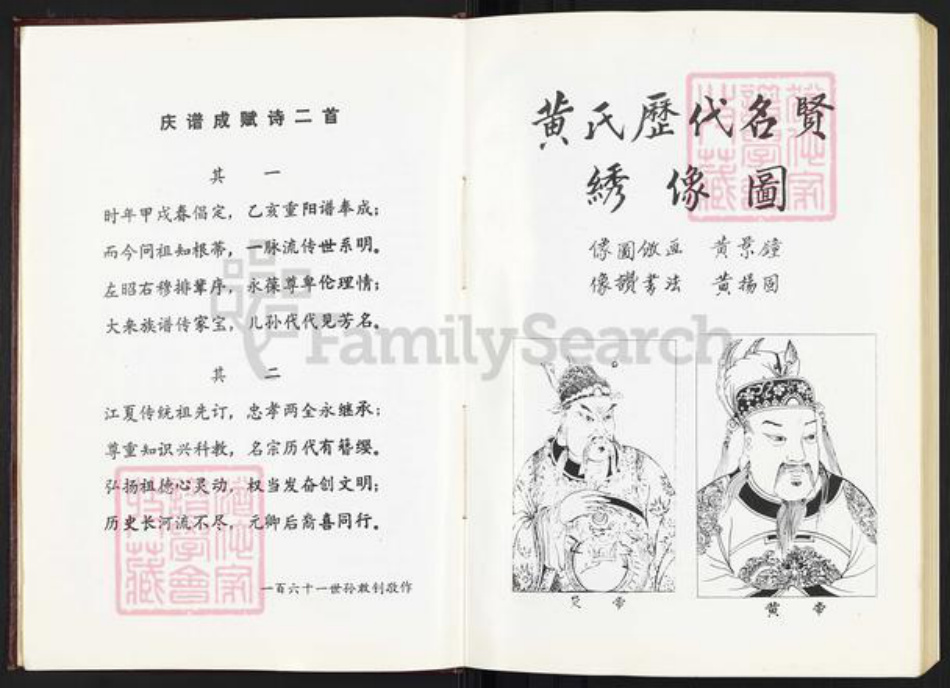 庆谱成赋诗二首
其一
时年甲戌春倡定，乙亥重阳谱奉成；
而今问祖知根蒂，一脉流传世系明。
左昭右穆排辈序，永葆尊卑伦理情；
大来族谱传家宝，儿孙代代见芳名。
其二
江夏传统祖先订，忠孝两全永继承；
尊重知识兴科教，名宗历代有簪缨。
弘扬祖德心灵动，权当发奋创文明；
历史长河流不尽，元卿后裔喜同行。
一百六十一世孙敢创敬作
黄氏歷代名賢
綉像圖
像圖倣画 黄景鐘
像讚書法 黄揚図
炎帝
黄帝
FamilySearch